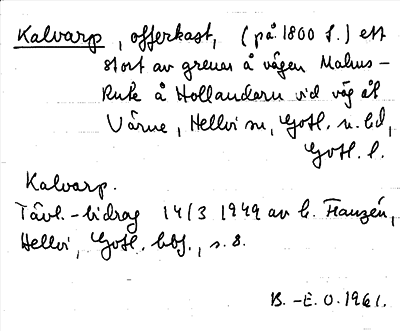 Kalvarp, offerkast, (på 1800 t.) ett
stort av grenar å vägen Malms-
Rute å Hollandern vid väg åt
Värne, Hellvi sn, Gotl. n. hd,
Gotl. l.
Kalvarp.
Tävl.-bidrag 14/3 1949 av b. Franzén,
Hellvi, Gotl. , s. 8.
B.-E. O. 1961.